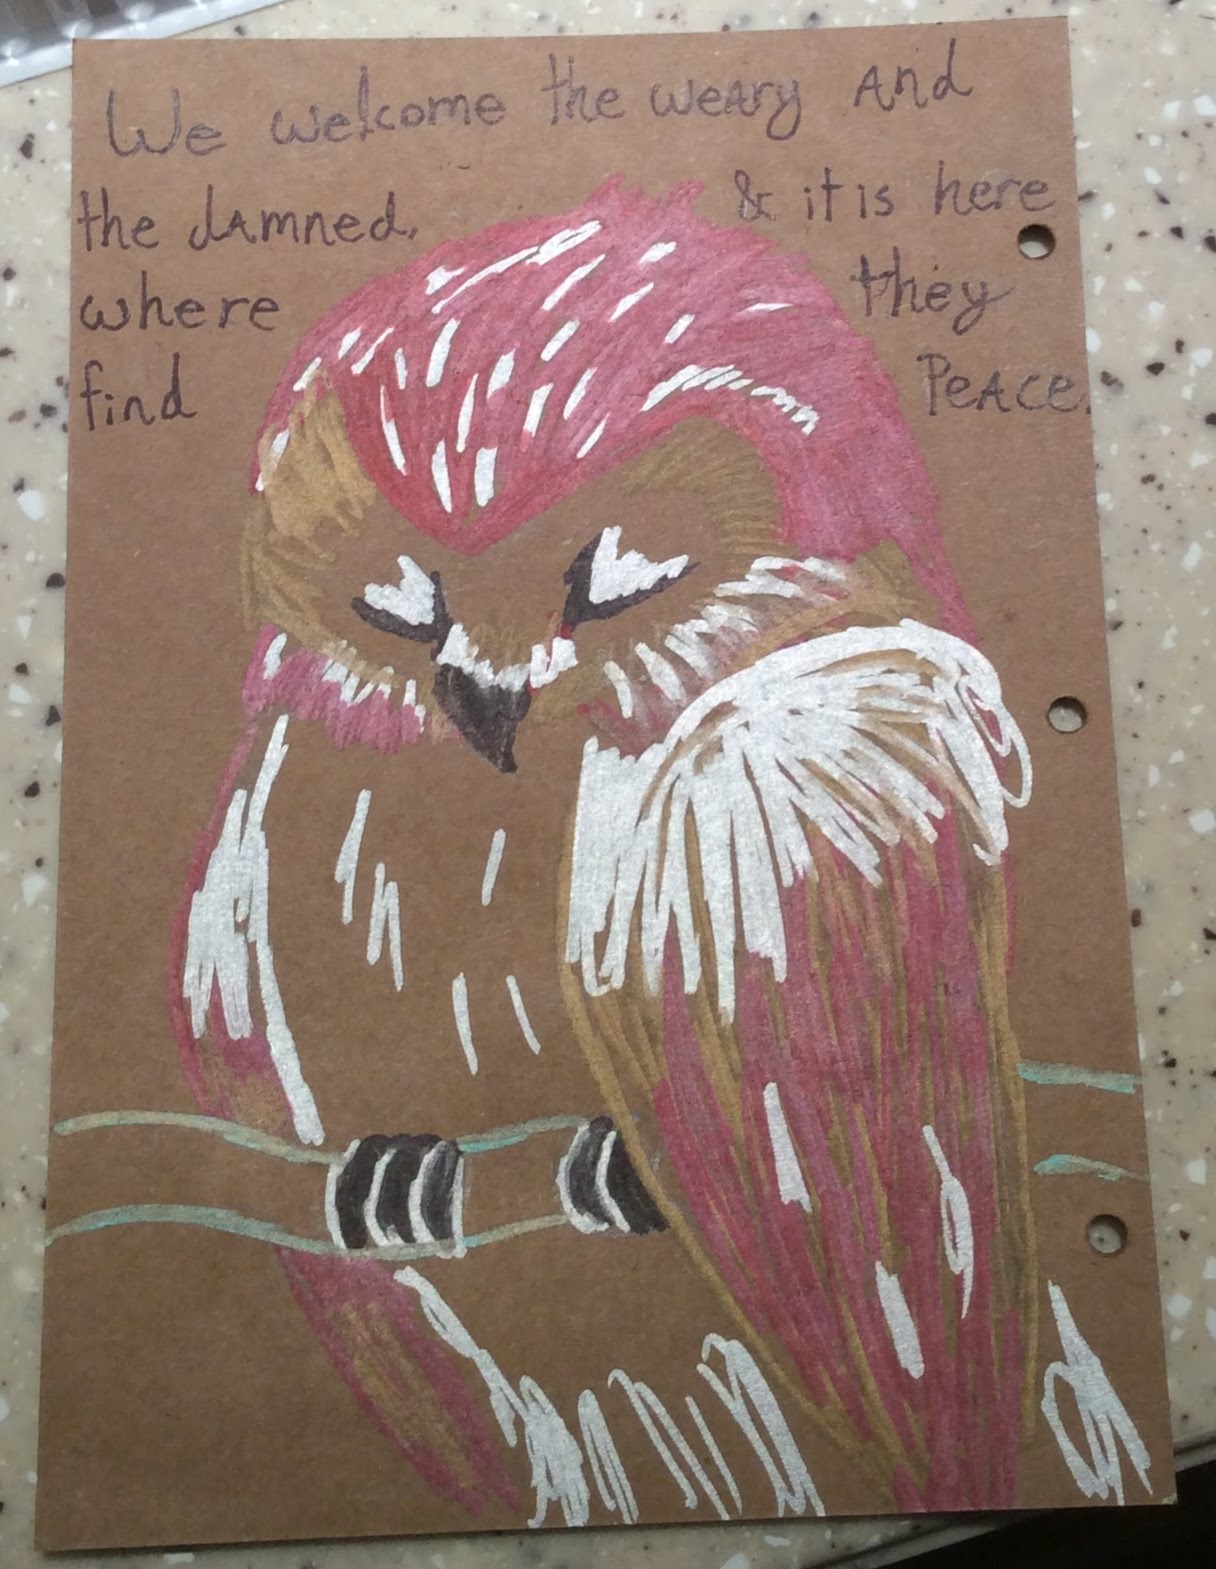 We welcome the weary and
the damned, & it is here
where they
find Peace.